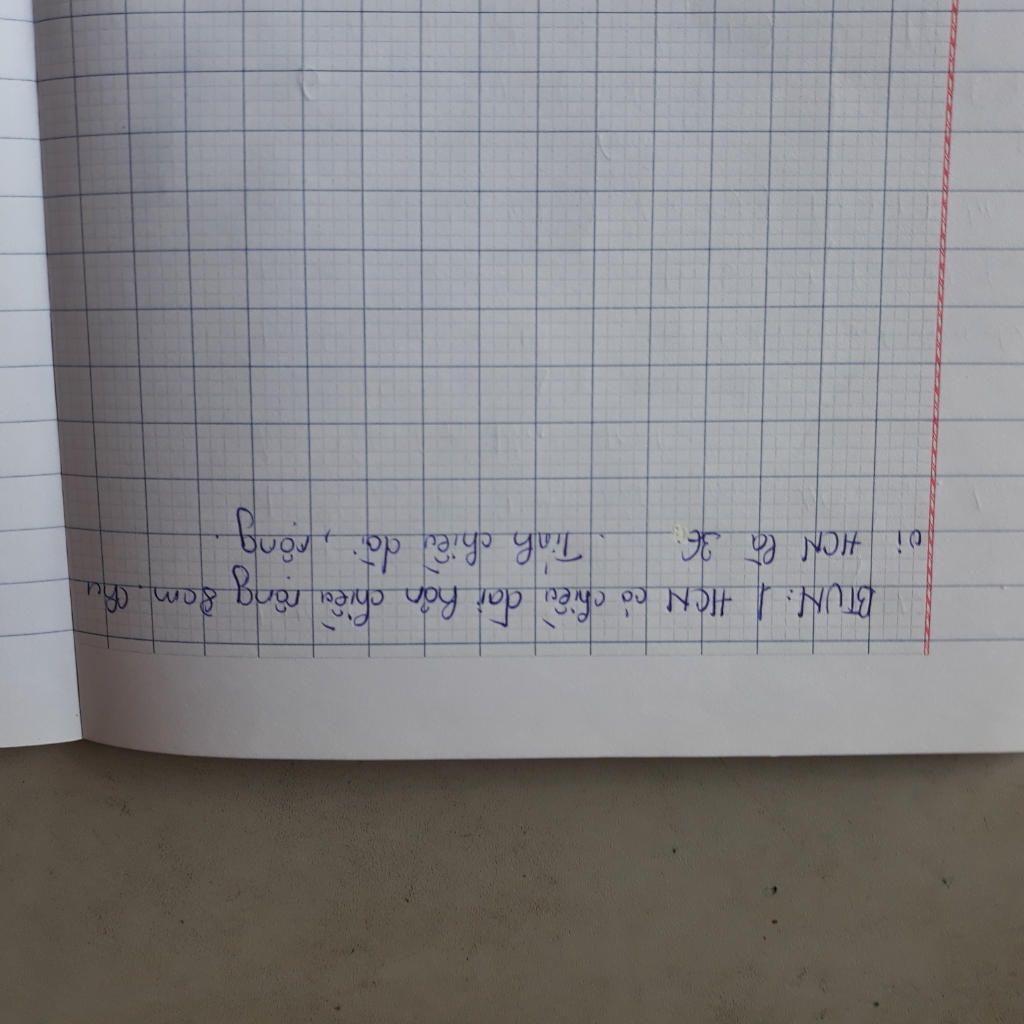 BTVN: 1 HCN có chiều dài hơn chiều rộng 8cm. Chu
vi HCN là 36 . Tính chiều dài, rộng.